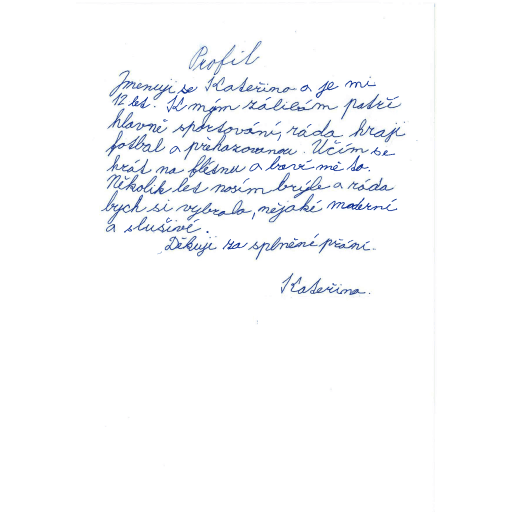 Profil
Jmenuji se Kateřina a je mi
12 let. K mým zálibám patří
hlavně sportování, ráda hraji
fotbal a přehazovanou. Učím se
hrát na flétnu a baví mě to.
Několik let nosím brýle a ráda
bych si vybrala, nějaké moderní
a slušivé.
Děkuji za splnění přání.
Kateřina.